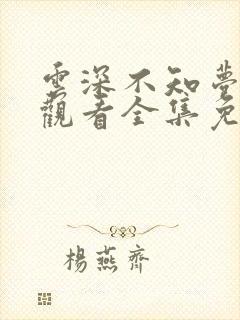 雲深不知夢
觀看全集免
楊燕齊